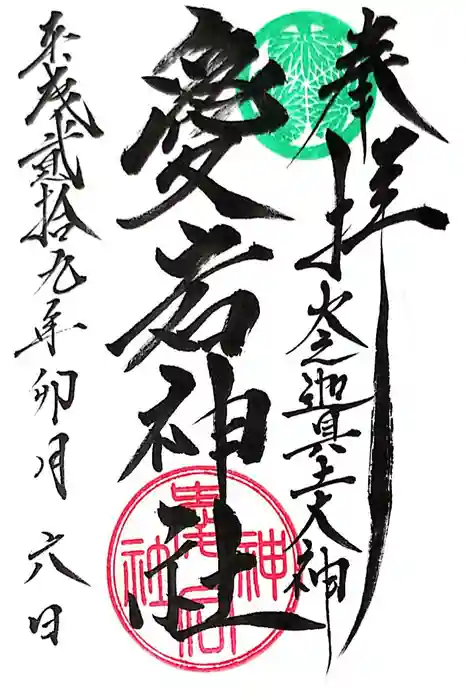 奉拝
火之迦具土大神
愛岩神社
平成貳拾九年卯月六日
愛宕神社